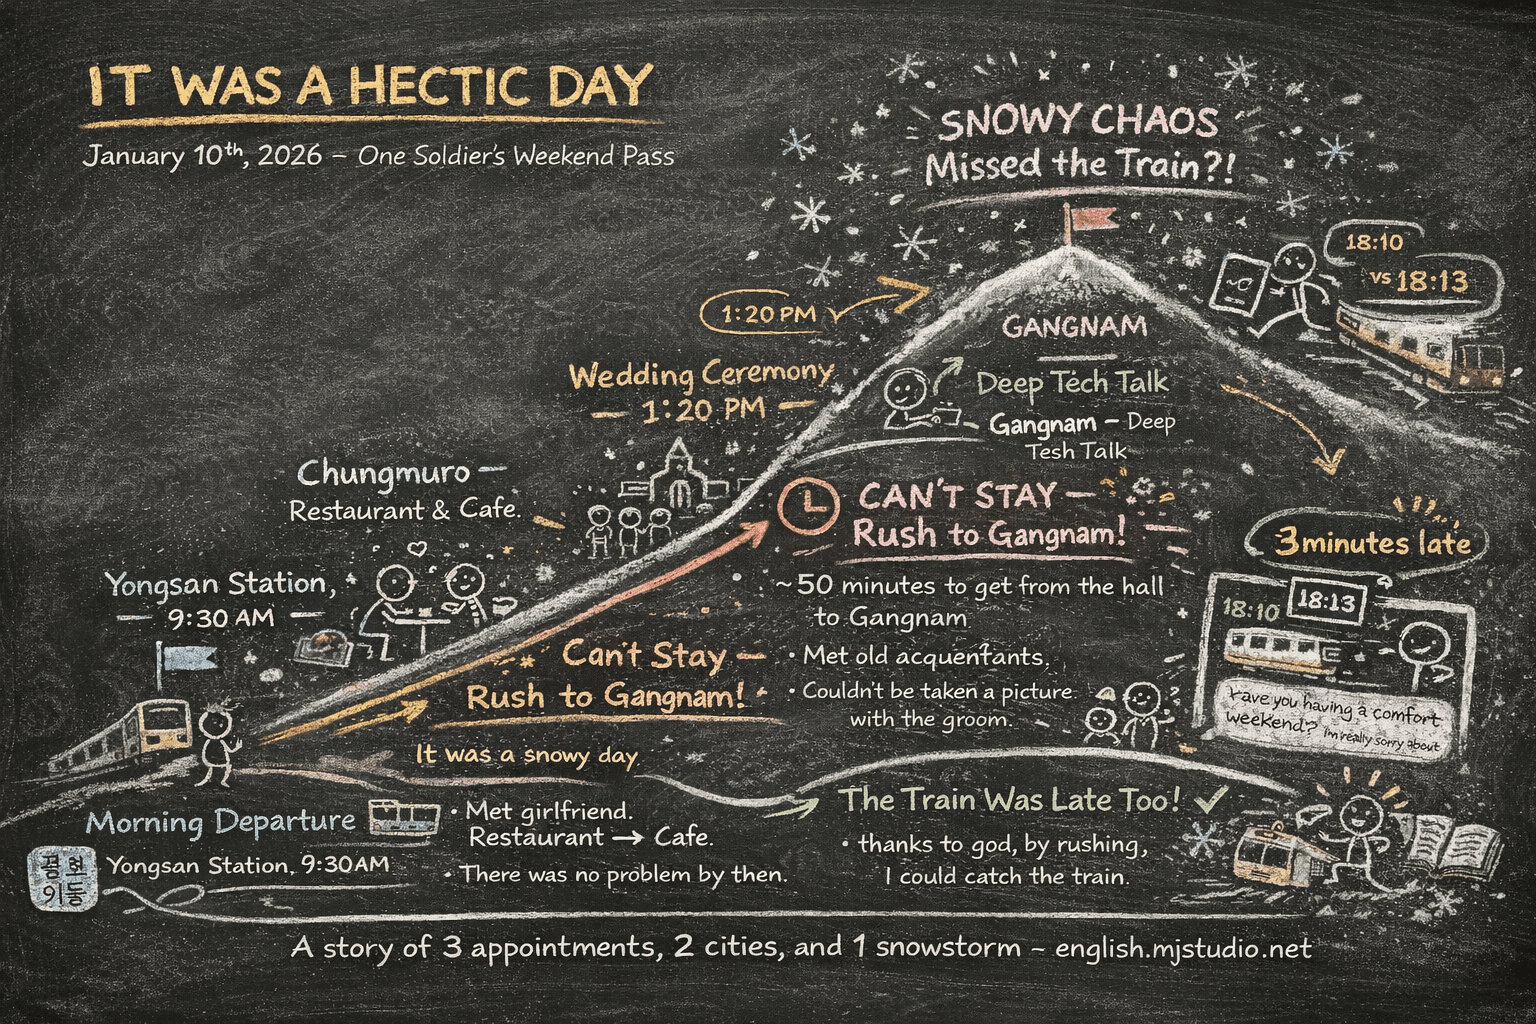 IT WAS A HECTIC DAY
January 10th, 2026 – One Soldier's Weekend Pass
SNOWY CHAOS
Missed the Train?!
18:10
vs 18:13
1:20 PM
GANGNAM
Deep Tech Talk
Gangnam – Deep
Tesh Talk
Wedding Ceremony
– 1:20 PM –
Chungmuro –
Restaurant & Cafe.
Yongsan Station,
– 9:30 AM –
CAN'T STAY –
Rush to Gangnam!
~50 minutes to get from the hall
to Gangnam
• Met old acquentants.
• Couldn't be taken a picture
with the groom.
3 minutes late
18:10
18:13
Have you having a comfort
weekend? I'm really sorry about
Can't Stay –
Rush to Gangnam!
It was a snowy day
Morning Departure
Yongsan Station, 9:30AM
• Met girlfriend.
Restaurant → Cafe.
• There was no problem by then.
The Train Was Late Too! ✓
• thanks to god, by rushing,
I could catch the train.
A story of 3 appointments, 2 cities, and 1 snowstorm ~ english.mjstudio.net